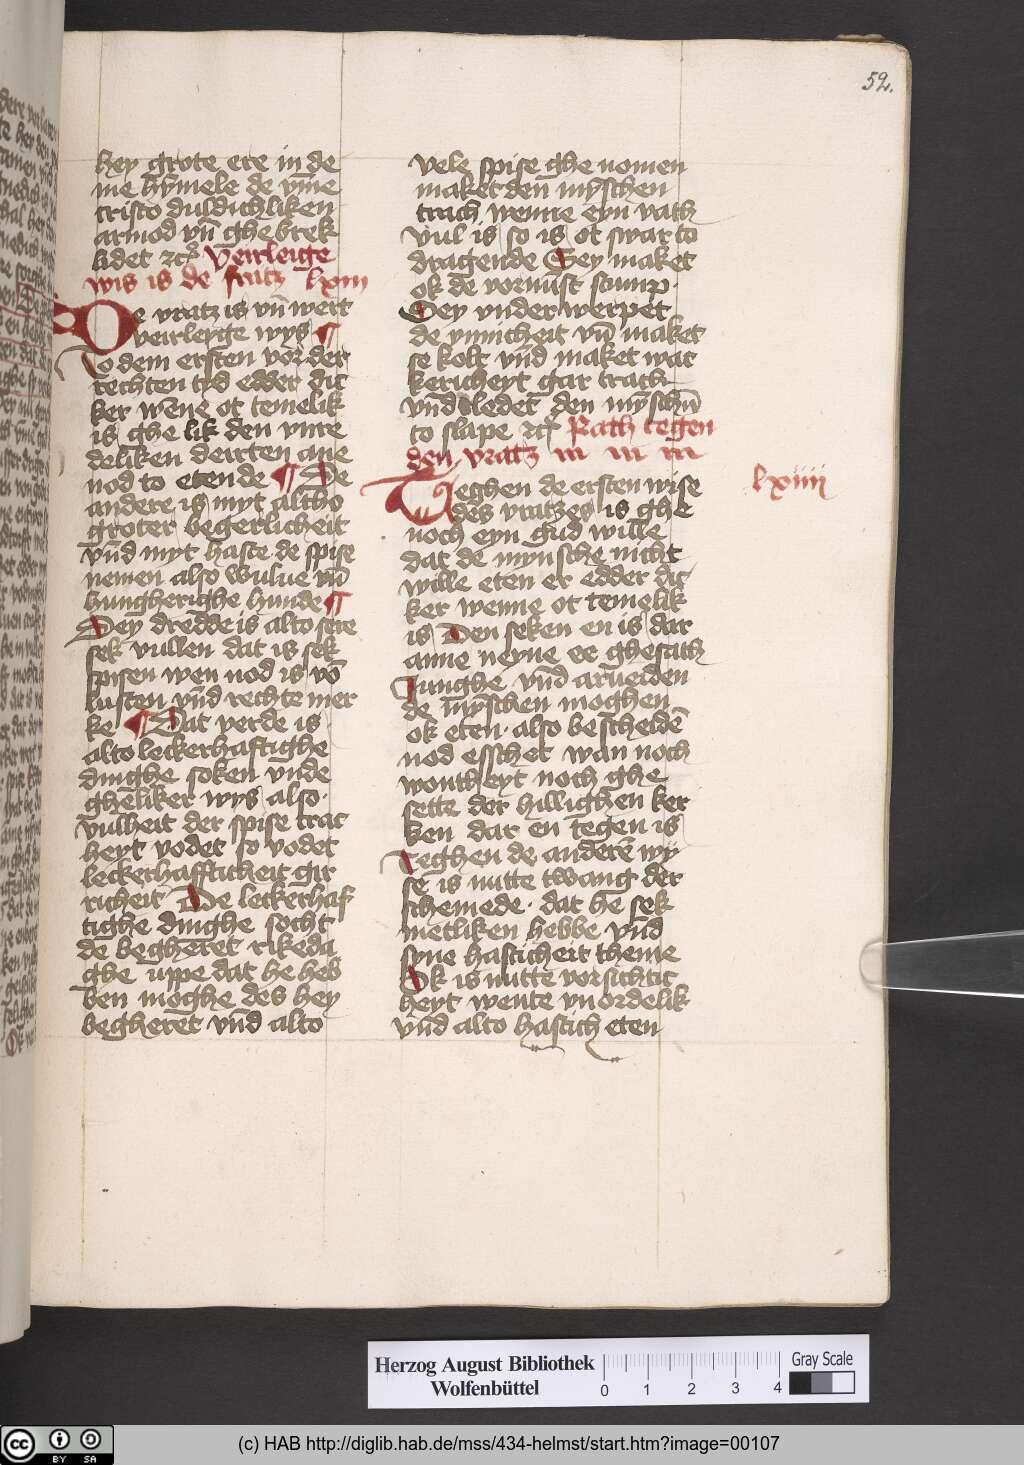 52.
hey grote ere in de
me hymele de vme
cristo duldichliken
armod vn̄ ghebrek
lidet ꝛcꝭ Veirleige
wis is de fratz lxiii
De vratz is vn̄ wert
veirleyge wys ¶
To dem ersten vor der
rechten tyd edder dic
ker wēne ot temelik
is ghe lik den vnre
deliken deirten ane
nod to eten de ¶ De
andere is myt altho
groter begerlicheit
vn̄d myt haste de spise
nemen also wulue vn̄
hungherighe hunde ¶
Dey dredde is alto sere
sek vullen dat is sek
spisen wen nod is vō
lusten vn̄d rechte mer
ke ¶ Dat verde is
alto leckerhaftighe
dinghe soken vnde
gheliker wys also
vulheit der spise trac
heyt vodet so vodet
leckerhaffticheit gir
richeit De leckerhaf
tighe dinghe socht
de begheret rikeda
ghe uppe dat he heb
ben moghe des hey
begheret vn̄d alto
vele spise ghe nomen
maket den mȳschen
trach wenne eyn vath
vul is so is ot swar to
dragende Dey maket
ok de vornust stump
Dey vnderwerpet
de ynnicheit vn̄ maket
se kolt vn̄d maket wac
kericheyt gar trach
vn̄d ledet den mȳschē
to slape ꝛcꝭ Rath tegen
den vratz
lxiiii
Teghen de ersten wise
des vratzes is ghe
noch eyn gud wille
dat de mynsche nicht
wille eten er edder dic
ker wenne ot temelik
is Den seken en is dar
anne neyne ee ghesath
Junghe vn̄d arueiden
de mȳschen moghen
ok eten also bescheidē
nod esschet wan noch
wontheyt noch ghe
sette der hillighen ker
ken dar en tegen is
Teghen de anderē wy
se is nutte twang der
schemede dat he sek
metliken hebbe vn̄d
syne hasticheit theme
Ok is nutte vorsichtic
heyt wente vnordelik
vn̄d alto hastich eten
Herzog August Bibliothek
Wolfenbüttel
0 1 2 3 4
Gray Scale
(c) HAB http://diglib.hab.de/mss/434-helmst/start.htm?image=00107
cc BY SA